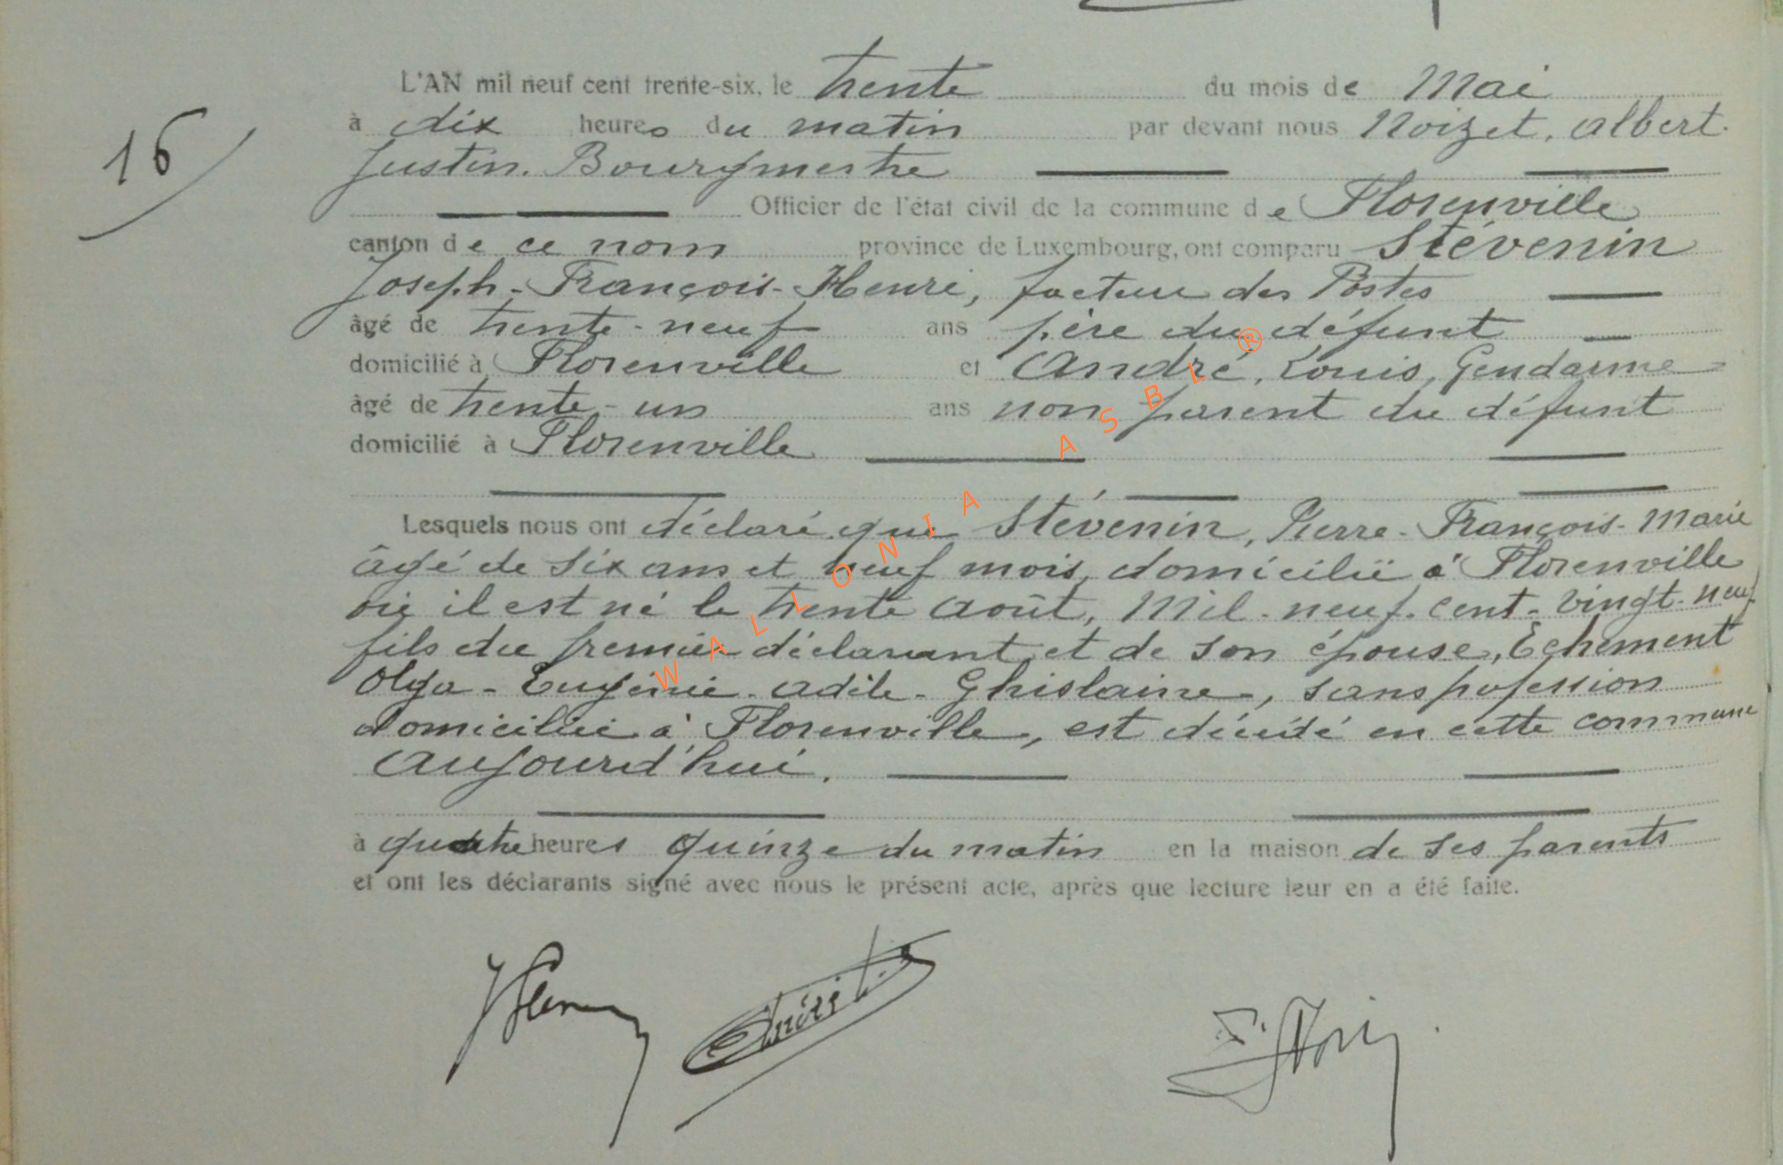 16
L'AN mil neuf cent trente-six, le trente du mois de Mai
à dix heures du matin par devant nous Noizet, Albert
Justin. Bourgmestre
Officier de l'état civil de la commune de Florenville
canton de ce nom province de Luxembourg, ont comparu Stévenin
Joseph-François-Henri, facteur des Postes
âgé de trente-neuf ans père du défunt
domicilié à Florenville et André, Louis, Gendarme
âgé de trente-un ans non parent du défunt
domicilié à Florenville
Lesquels nous ont déclaré que Stévenin, Pierre-François-Marie
âgé de six ans et neuf mois, domicilié à Florenville
où il est né le trente août, Mil-neuf-cent-vingt-neuf
fils du premier déclarant et de son épouse, Echement
Olga-Eugénie-Adèle-Ghislaine, sans profession
domiciliée à Florenville, est décédé en cette commune
Aujourd'hui.
à quatre heures quinze du matin en la maison de ses parents
et ont les déclarants signé avec nous le présent acte, après que lecture leur en a été faite.
WALLONIA ASBL ®